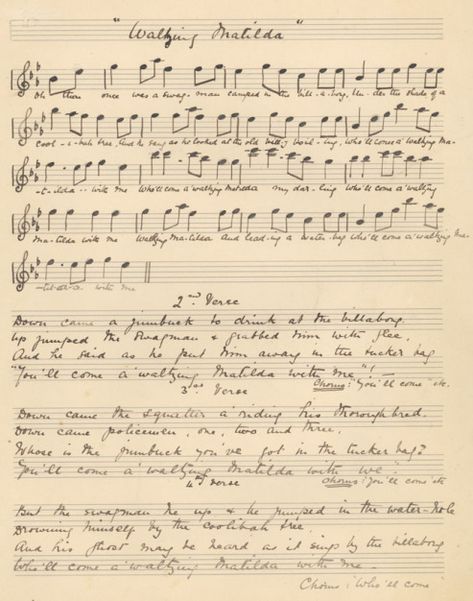 "Waltzing Matilda"
Oh there once was a swag-man camped in the bill-a-bong, Un-der the shade of a
cool-i-bah tree, And he sang as he looked at the old billy boil-ing, who'll come a' waltzing Ma-
-t-ilda-- with me Who'll come a' waltzing Matilda my dar-ling who'll come a' waltzing
Ma-tilda with me Waltzing Ma-tilda and lead-ing a water-bag who'll come a' waltzing Ma-
-tilda with me
2nd Verse
Down came a jumbuck to drink at the billabong
Up jumped the swagman & grabbed him with glee.
And he said as he put him away in the tucker bag
"You'll come a' waltzing Matilda with me"! -
Chorus: "You'll come etc.
3rd Verse
Down came the squatter a' riding his thoroughbred.
Down came policemen, one, two and three.
Whose is the jumbuck you've got in the tucker bag?
You'll come a' waltzing Matilda with we.
Chorus: You'll come etc
4th Verse
But the swagman he up & he jumped in the water-hole
Drowning himself by the coolibah tree.
And his ghost may be heard as it sings by the billabong
Who'll come a' waltzing Matilda with me.
Chorus: Who'll come